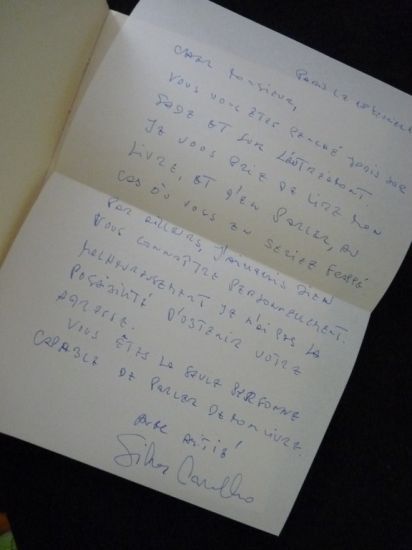 CHER MONSIEUR,
VOUS VOUS ÊTES PENCHÉ JADIS SUR
SADE ET SUR LAUTRÉAMONT.
JE VOUS PRIE DE LIRE MON
LIVRE, ET D'EN PARLER, AU
CAS OÙ VOUS EN SERIEZ FRAPPÉ.
PAR AILLEURS, J'AIMERAIS BIEN
VOUS CONNAÎTRE PERSONNELLEMENT.
MALHEUREUSEMENT JE N'AI PAS LA
POSSIBILITÉ D'OBTENIR VOTRE
ADRESSE.
VOUS ÊTES LA SEULE PERSONNE
CAPABLE DE PARLER DE MON LIVRE.